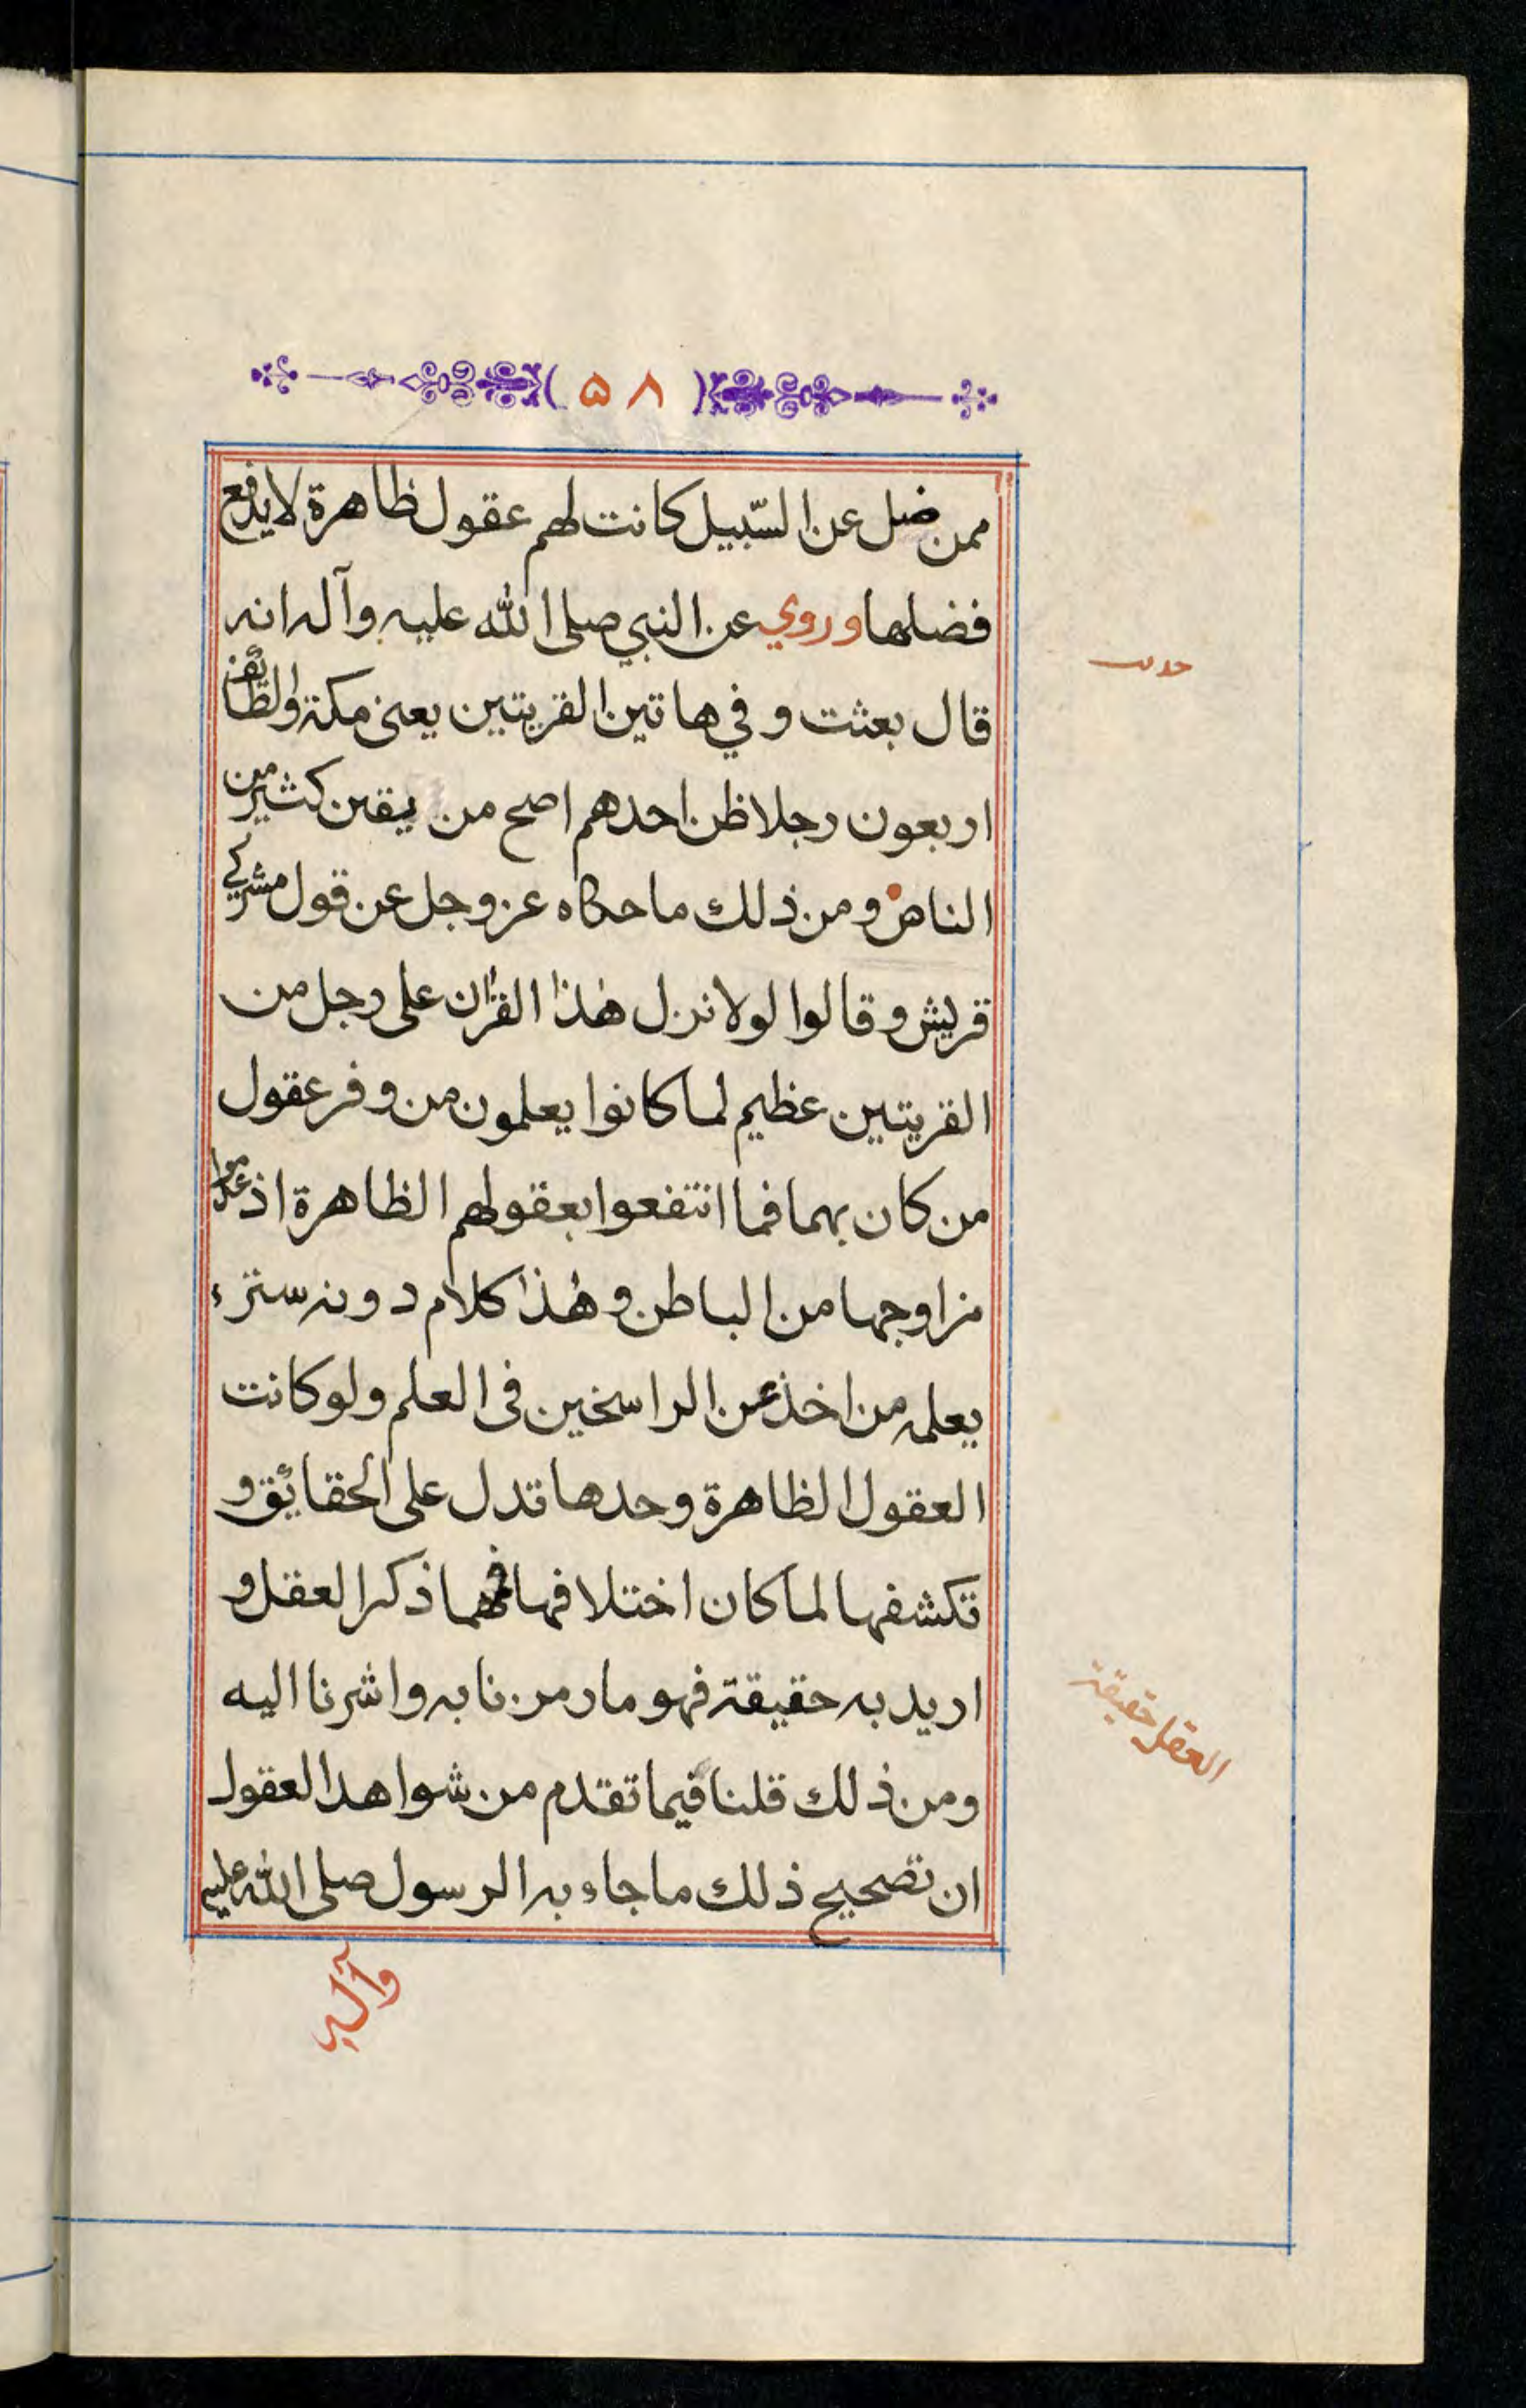 ( ۵۸ )
ممن ضل عن السّبيل كانت لهم عقول ظاهرة لا يدفع
فضلها وروي عن النبي صلى الله عليه وآله انه
قال بعثت و في هاتين القريتين يعني مكة والطائف
اربعون رجلا ظن احدهم اصح من يقين كثير من
الناس ومن ذلك ما حكاه عز وجل عن قول مشركي
قريش و قالوا لولا نزل هٰذا القرٰان على رجل من
القريتين عظيم لما كانوا يعلمون من وفر عقول
من كان بهما فما انتفعوا بعقولهم الظاهرة اذ عدموا
مزاوجها من الباطن و هٰذا كلام دونه ستر،
يعلمه من اخذ عن الراسخين فى العلم ولو كانت
العقول الظاهرة وحدها تدل على الحقائق و
تكشفها لما كان اختلافها فمهما ذكر العقل و
اريد به حقيقة فهو ما رمزنا به واشرنا اليه
ومن ذلك قلنا فيما تقدم من شواهد العقول
ان تصحيح ذلك ما جاء به الرسول صلى الله عليه
وآله
حديث
العقل حقيقة